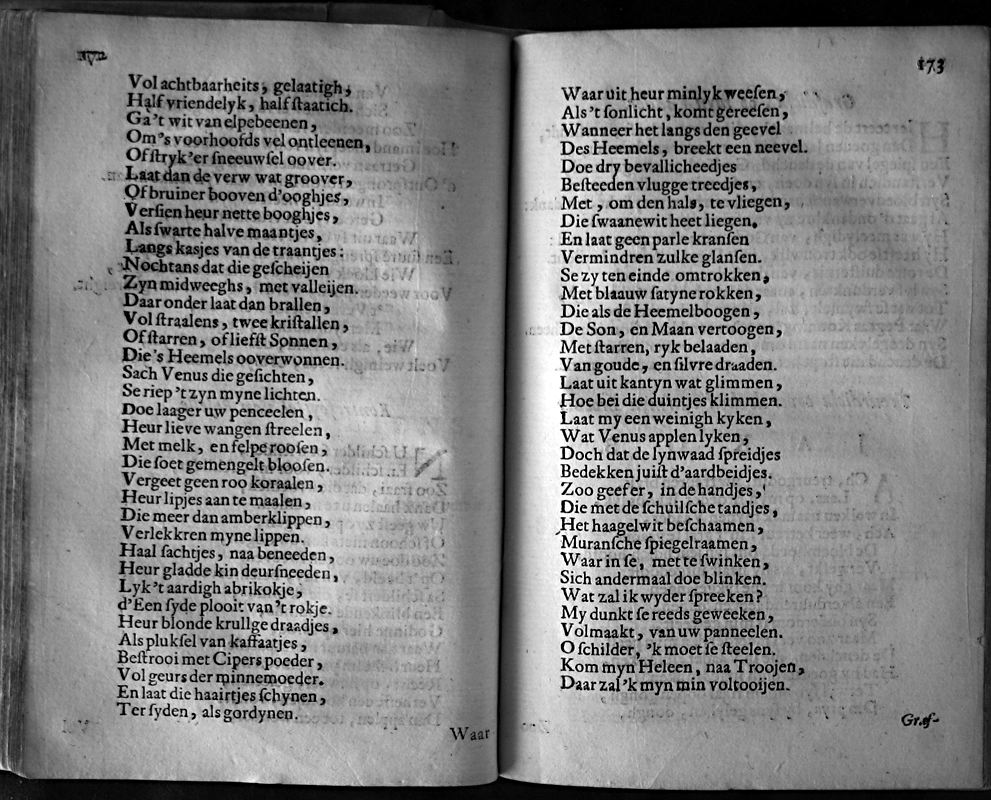 Vol achtbaarheits, gelaatigh,
Half vriendelyk, half ſtaatich.
Ga't wit van elpebeenen,
Om's voorhoofds vel ontleenen,
Of ſtryk'er ſneeuwſel oover.
Laat dan de verw wat groover,
Of bruiner booven d'ooghjes,
Verſien heur nette booghjes,
Als ſwarte halve maantjes,
Langs kasjes van de traantjes:
Nochtans dat die geſcheijen
Zyn midweeghs, met valleijen.
Daar onder laat dan brallen,
Vol ſtraalens, twee kriſtallen,
Of ſtarren, of liefſt Sonnen,
Die's Heemels ooverwonnen.
Sach Venus die geſichten,
Se riep 't zyn myne lichten.
Doe laager uw penceelen,
Heur lieve wangen ſtreelen,
Met melk, en felpe rooſen,
Die ſoet gemengelt blooſen.
Vergeet geen roo koraalen,
Heur lipjes aan te maalen,
Die meer dan amberklippen,
Verlekkren myne lippen.
Haal ſachtjes, naa beneeden,
Heur gladde kin deurſneeden,
Lyk't aardigh abrikokje,
d'Een ſyde plooit van't rokje.
Heur blonde krullge draadjes,
Als plukſel van kaffaatjes,
Beſtrooi met Cipers poeder,
Vol geurs der minnemoeder.
En laat die haairtjes ſchynen,
Ter ſyden, als gordynen.
Waar
173
Waar uit heur minlyk weeſen,
Als 't ſonlicht, komt gereeſen,
Wanneer het langs den geevel
Des Heemels, breekt een neevel.
Doe dry bevallicheedjes
Beſteeden vlugge treedjes,
Met, om den hals, te vliegen,
Die ſwaanewit heet liegen.
En laat geen parle kranſen
Vermindren zulke glanſen.
Se zy ten einde omtrokken,
Met blaauw ſatyne rokken,
Die als de Heemelboogen,
De Son, en Maan vertoogen,
Met ſtarren, ryk belaaden,
Van goude, en ſilvre draaden.
Laat uit kantyn wat glimmen,
Hoe bei die duintjes klimmen.
Laat my een weinigh kyken,
Wat Venus applen lyken,
Doch dat de lynwaad ſpreidjes
Bedekken juiſt d'aardbeidjes.
Zoo geef er, in de handjes,
Die met de ſchuilſche tandjes,
Het haagelwit beſchaamen,
Muranſche ſpiegelraamen,
Waar in ſe, met te ſwinken,
Sich andermaal doe blinken.
Wat zal ik wyder ſpreeken?
My dunkt ſe reeds geweeken,
Volmaakt, van uw panneelen.
O ſchilder, 'k moet ſe ſteelen.
Kom myn Heleen, naa Troojen,
Daar zal 'k myn min voltooijen.
Graf-